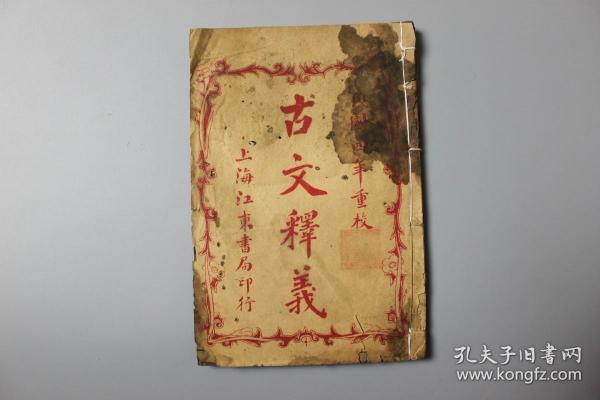 國四年重校
古文釋義
上海江東書局印行
孔夫子旧书网
www.kongfz.com